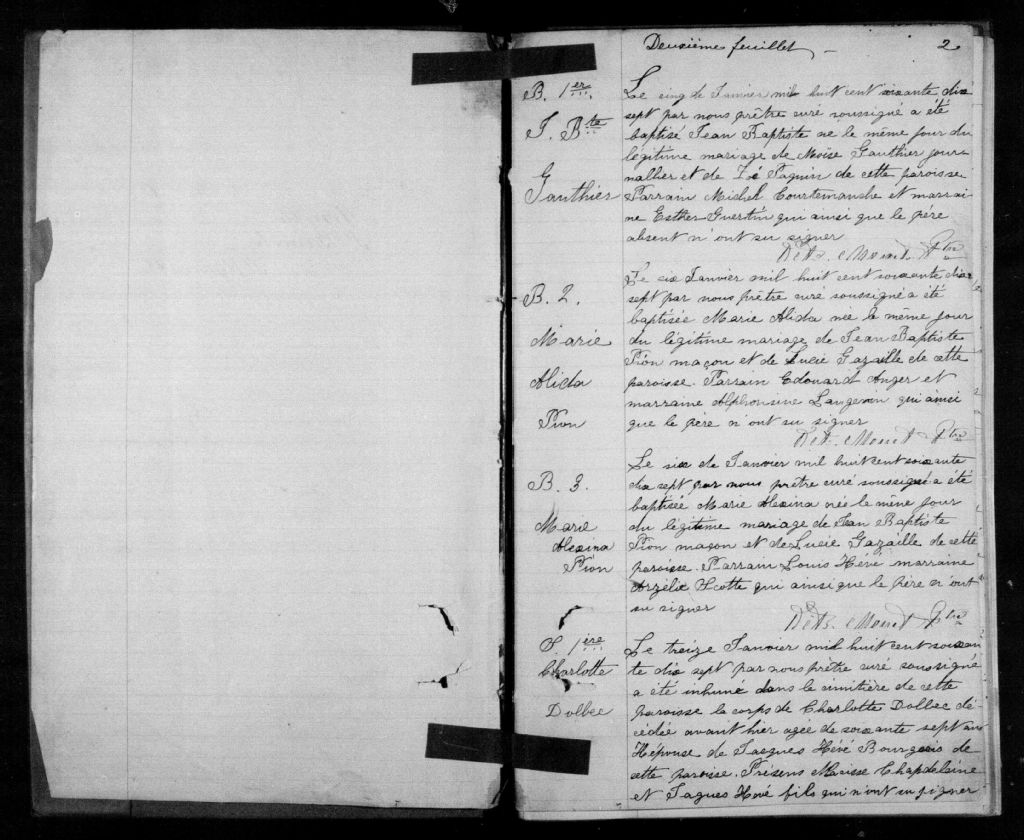 Deuxième feuillet
2
B. 1er
J. Bte
Gauthier
Le cinq de Janvier mil huit cent soixante dix
sept par nous prêtre curé soussigné a été
baptisé Jean Baptiste né le même jour du
légitime mariage de Moïse Gauthier jour-
nallier et de Zoé Paquin de cette paroisse
Parrain Michel Courtemanche et marrai-
ne Esther Guertin qui ainsi que le père
absent n'ont su signer
Ptre
B. 2.
Marie
Alida
Pion
Le six Janvier mil huit cent soixante dix
sept par nous prêtre curé soussigné a été
baptisée Marie Alida née le même jour
du légitime mariage de Jean Baptiste
Pion maçon et de Lucie Gazaille de cette
paroisse. Parrain Edouard Anger et
marraine Alphonsine Langevin qui ainsi
que le père n ont su signer
Ptre
B. 3.
Marie
Alexina
Pion
Le six de Janvier mil huit cent soixante
dix sept par nous prêtre curé soussigné a été
baptisée Marie Alexina née le même jour
du légitime mariage de Jean Baptiste
Pion maçon et de Lucie Gazaille de cette
paroisse. Parrain Louis Hévé marraine
Arzélie Scotte qui ainsi que le père n'ont
su signer
Ptre
S. 1ère
Charlotte
Dolbec
Le treize Janvier mil huit cent soixan
te dix sept par nous prêtre curé soussigné
a été inhumé dans le cimitière de cette
paroisse le corps de Charlotte Dolbec dé-
cédée avant hier agée de soixante sept ans
Hépouse de Jacques Hévé Bourgeois de
cette paroisse. Présens Chapdelaine
et Jaques Hévé fils qui n'ont su signer